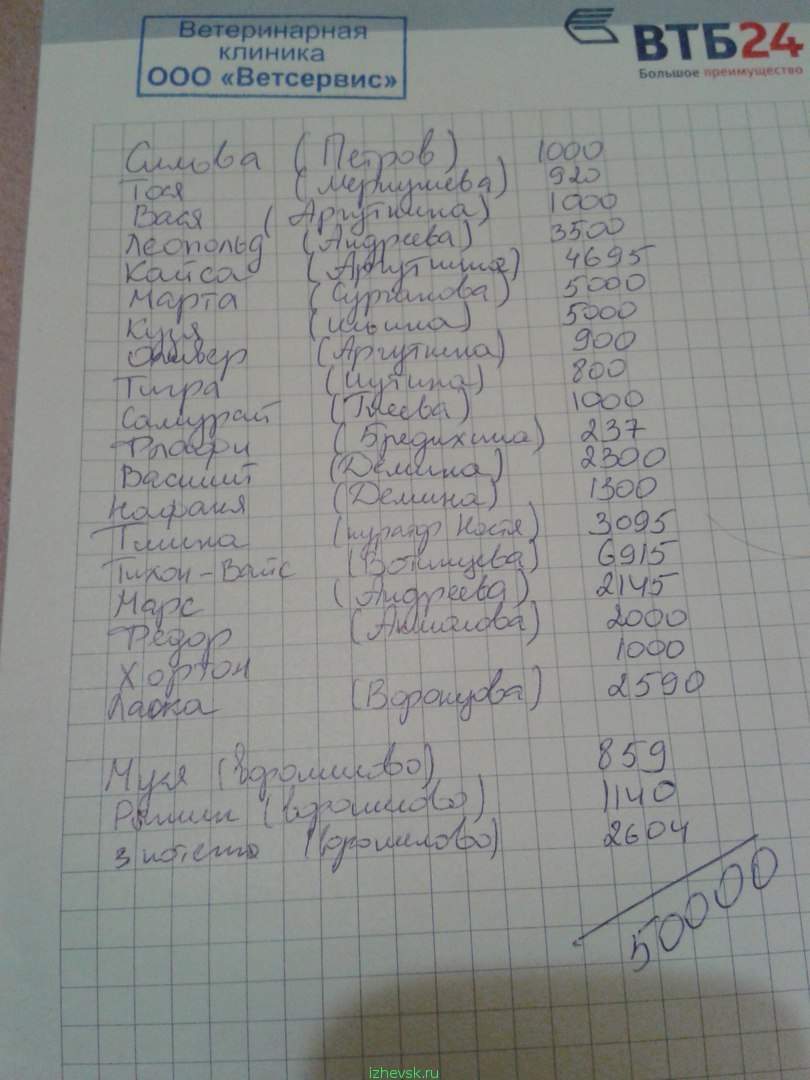 Ветеринарная
клиника
ООО «Ветсервис»
ВТБ24
Большое преимущество
Симова (Петров) 1000
Тося (Меркушева) 920
Вася (Аргуткина) 1000
Леопольд (Андреева) 3500
Кайса (Аргуткина) 4695
Марта (Сурганова) 5000
Кузя (Ильина) 5000
Оливер (Аргуткина) 900
Тигра (Шутина) 800
Самурай 1000
Фьюри (Бредихина) 237
Василий (Демина) 2300
Нафаня (Демина) 1300
Тмина (куратор Костя) 3095
Тихон-Вайс (Вотинцева) 6915
Марс (Андреева) 2145
Федор 2000
Хортон 1000
Ласка (Воронцова) 2590
Муся (ворошилово) 859
(ворошилово) 1140
3 котенка (ворошилово) 2604
50000
izhevsk.ru